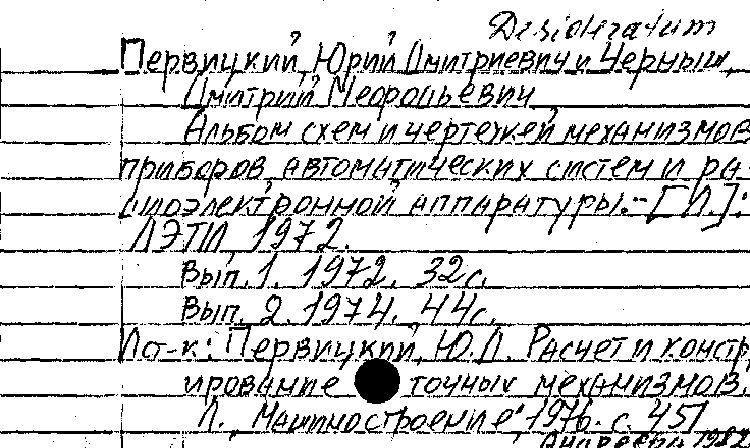 Desideratum
Первицкий, Юрий Дмитриевич и Черный,
Дмитрий Меородьевич
Альбом схем и чертежей механизмов
приборов, автоматических систем и ра
диоэлектронной аппаратуры.- [Л.]:
ЛЭТИ, 1972.
Вып. 1. 1972. 32с.
Вып. 2. 1974. 44с.
Ист-к: Первицкий, Ю.Д. Расчет и констр
ирование точных механизмов.
Л., "Машиностроение", 1976. с. 451
Андреева 198